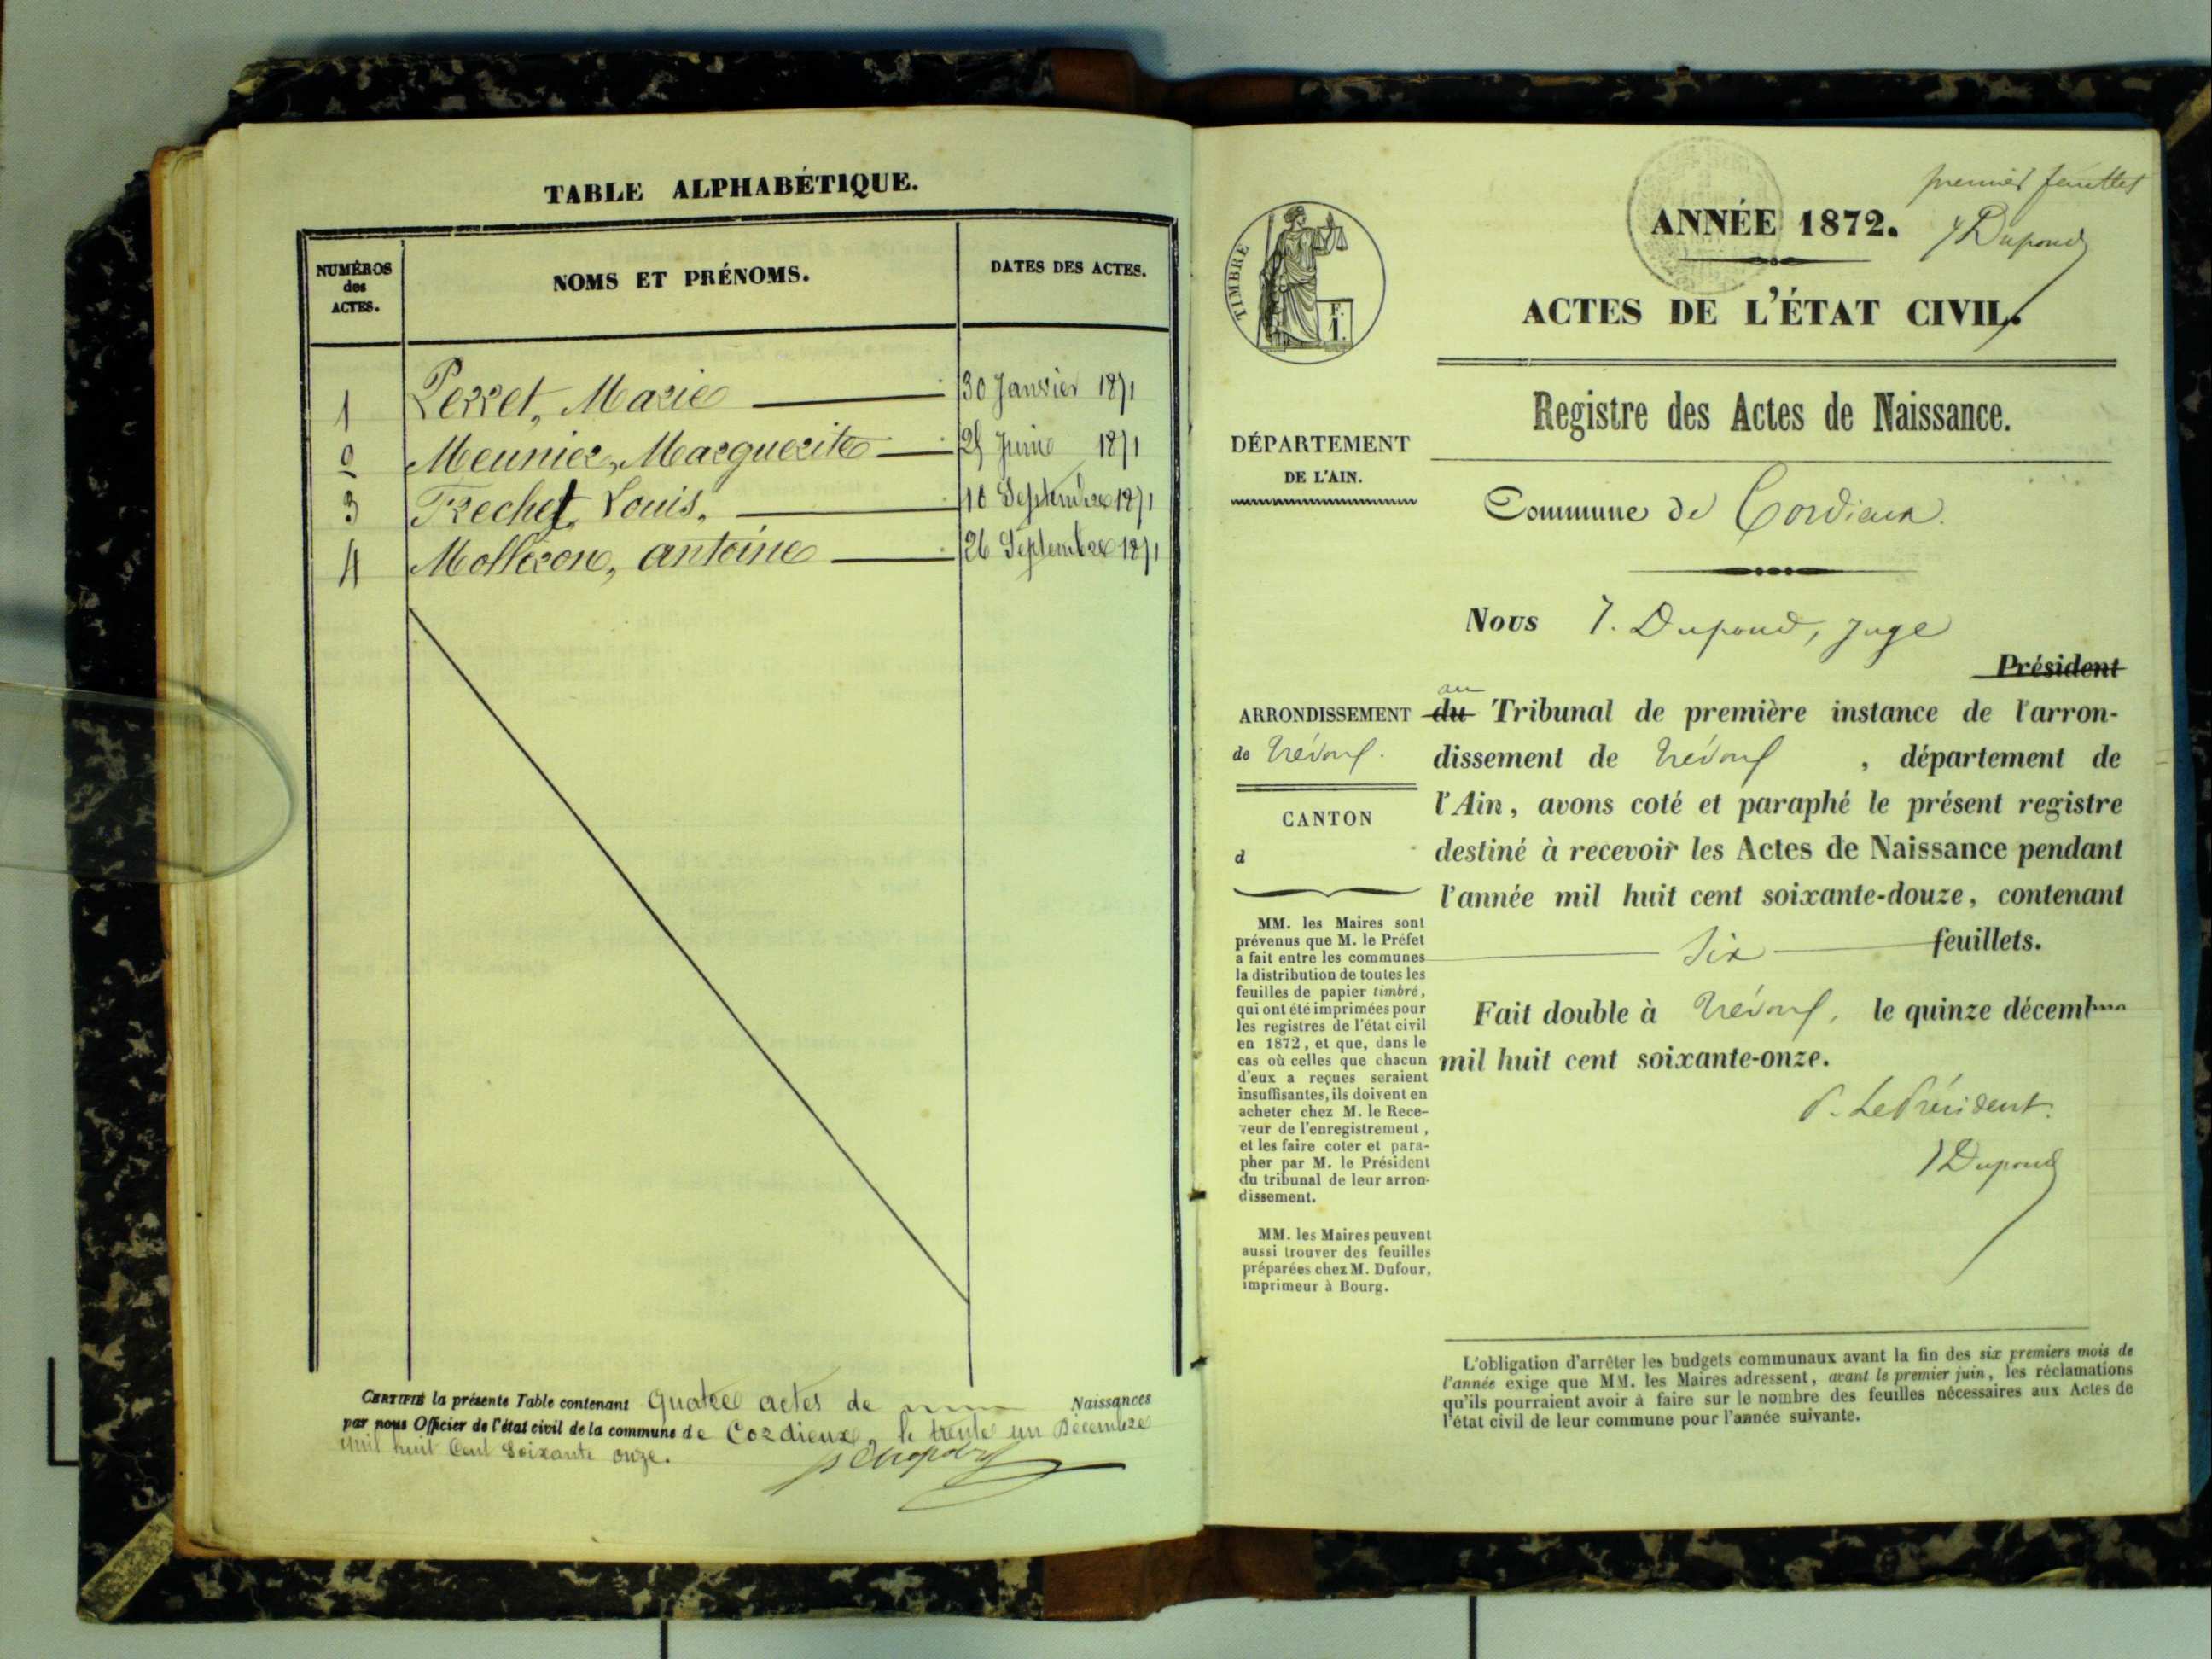 TABLE ALPHABÉTIQUE.
NUMÉROS
des
ACTES.
NOMS ET PRÉNOMS.
DATES DES ACTES.
1 Perret, Marie 30 Janvier 1871
2 Meunier, Marguerite Juin 1871
3 Frechet, Louis. 10 Septembre 1871
4 antoine 26 Septembre 1871
CERTIFIÉ la présente Table contenant quatre actes de Naissances
par nous Officier de l'état civil de la commune de Cordieux, le trente un Décembre
mil huit Cent Soixante onze.
premier feuillet
ANNÉE 1872.
J Dupond
ACTES DE L'ÉTAT CIVIL.
TIMBRE
Registre des Actes de Naissance.
DÉPARTEMENT
DE L'AIN.
Commune de Cordieux.
Nous J. Dupond, juge
Président
au
ARRONDISSEMENT
de Trévoux.
CANTON
d
du Tribunal de première instance de l'arron-
dissement de Trévoux, département de
l'Ain, avons coté et paraphé le présent registre
destiné à recevoir les Actes de Naissance pendant
l'année mil huit cent soixante-douze, contenant
six feuillets.
Fait double à Trévoux, le quinze décembre
mil huit cent soixante-onze.
P. Le Président.
J Dupond
MM. les Maires sont
prévenus que M. le Préfet
a fait entre les communes
la distribution de toutes les
feuilles de papier timbré,
qui ont été imprimées pour
les registres de l'état civil
en 1872, et que, dans le
cas où celles que chacun
d'eux a reçues seraient
insuffisantes, ils doivent en
acheter chez M. le Rece-
veur de l'enregistrement,
et les faire coter et para-
pher par M. le Président
du tribunal de leur arron-
dissement.
MM. les Maires peuvent
aussi trouver des feuilles
préparées chez M. Dufour,
imprimeur à Bourg.
L'obligation d'arrêter les budgets communaux avant la fin des six premiers mois de
l'année exige que MM. les Maires adressent, avant le premier juin, les réclamations
qu'ils pourraient avoir à faire sur le nombre des feuilles nécessaires aux Actes de
l'état civil de leur commune pour l'année suivante.